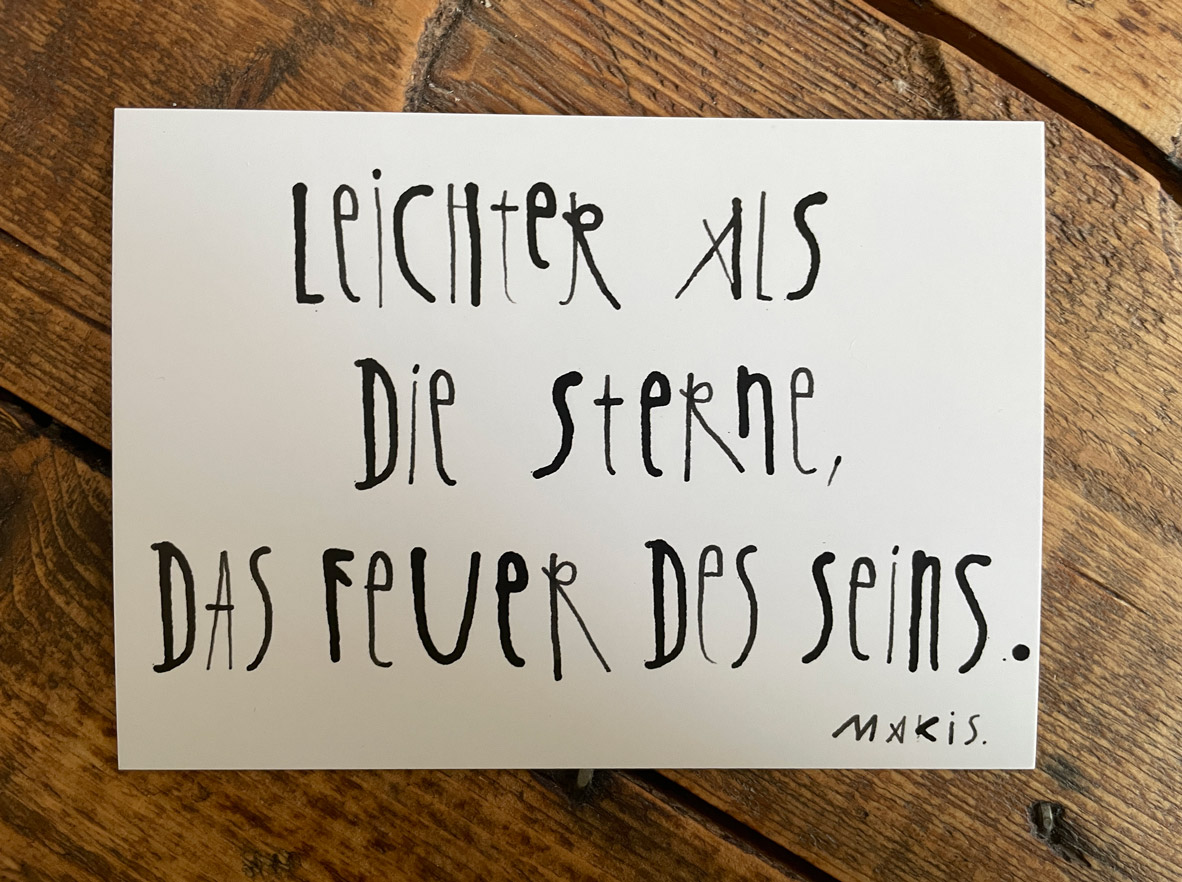 Leichter als
die Sterne,
das Feuer des Seins.
Makis.